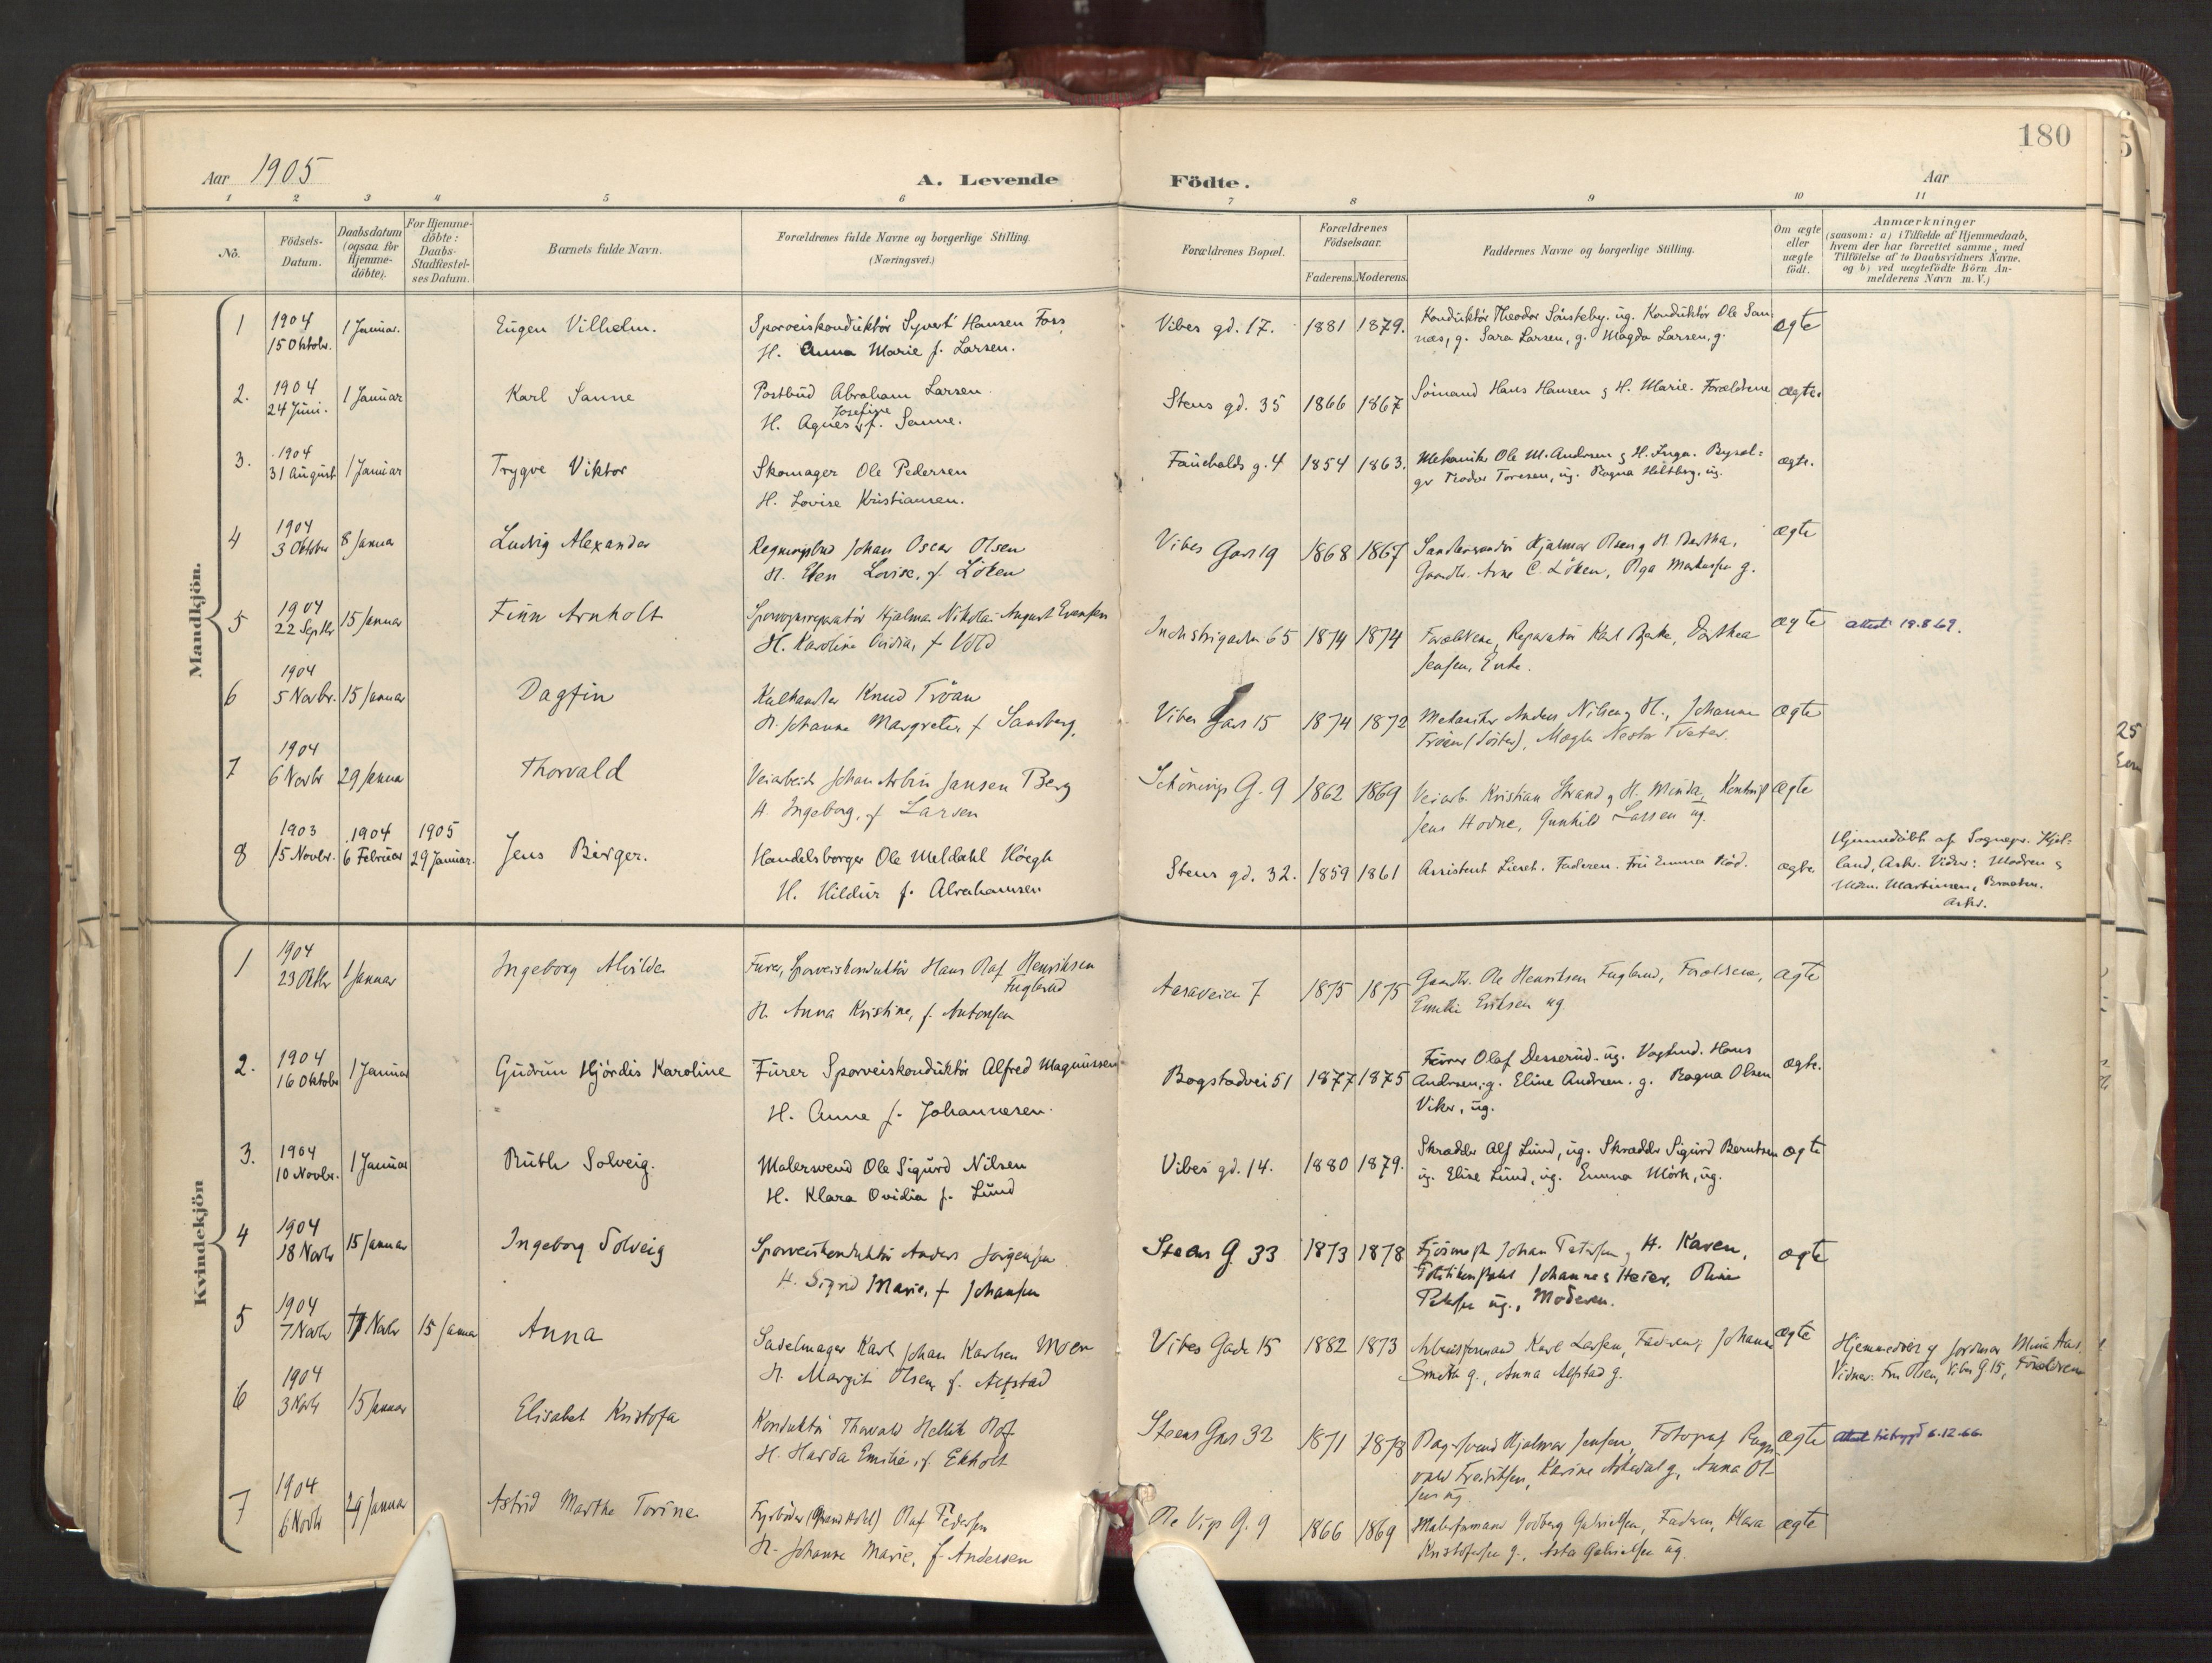 180
Aar 1905
A. Levende Födte.
Aar
1 2 3 4 5 6 7 8 9 10 11
No.
Födsels-Datum.
Daabsdatum (ogsaa for Hjemme-döbte).
For Hjemme-döbte: Daabs-Stadfæstel-ses Datum.
Barnets fulde Navn.
Forældrenes fulde Navne og borgerlige Stilling.
(Næringsvei.)
Forældrenes Bopæl.
Forældrenes Födselsaar.
Faderens. Moderens.
Faddernes Navne og borgerlige Stilling.
Om ægte eller uægte födt.
Anmærkninger
(saasom: a) i Tilfælde af Hjemmedaab,
hvem der har forrettet samme, med
Tilföielse af to Daabsvidners Navne.
og b) ved uægtefödte Börn An-
melderens Navn m. V.)
Mandkjön.
1 1904 15 Oktobr. 1 Januar. Eugen Vilhelm. Sporveiskonduktör Syvert Hansen Foss
H. Anna Marie f. Larsen.
Vibes gd. 17. 1881 1879. Konduktör Theodor Sönsteby. ug. Konduktör Ole San-
næs, g. Sara Larsen, g. Magda Larsen, g.
ægte
2. 1904 24 Juni. 1 Januar Karl Sanne Postbud Abraham Larsen
H. Agnes Josefine f. Sanne.
Stens gd. 35 1866 1867 Sömand Hans Hansen & H. Marie. Forældrene
ægte.
3. 1904 31 August 1 Januar Trygve Viktor Skomager Ole Pedersen
H. Lovise Kristiansen.
Fauchalds g. 4 1854 1863. Mekaniker Ole M. Andersen & H. Inga.
Toresen, ug. Ragna Heltberg. ug.
ægte.
4 1904 3 Oktober 8 Januar Ludvig Alexander Regningsbud Johan Oscar Olsen
H. Ellen Lovise, f. Löken
Vibes Gade 19 1868 1867 Hjalmar Olsen & H. Bertha,
Gaardbr. Arne C. Löken, Olga g.
ægte
5 1904 22 Septbr 15 Januar Finn Arnholt Hjalmar Nikolai August Evensen
H. Karoline Ovidia, f Vold
Industrigaden 65 1874 1874 Forældrene, Reparatör Karl Bakke, Dorthea
Jensen, Enke.
ægte attest 19.8.69.
6 1904 5 Novbr. 15 Januar Dagfin Kulhandler Knud Tröan
H. Johanne Margrete, f Sandberg,
Vibes Gade 15 1874 1872 Mekaniker Anders Nilsen & H., Johanne
Tröan (Söster), Nestor Tveter.
ægte
7 1904 6 Novbr 29 Januar Thorvald Veiarbeider Johan Arbin Jansen Berg
H. Ingeborg, f Larsen
Schönings G. 9 1862 1869 Veiarb. Kristian Strand & H. Minda,
Jens Hovne, Gunhild Larsen ug.
ægte
8 1903 15 Novbr. 1904 6 Februar 1905 29 Januar. Jens Birger. Handelsborger Ole Meldahl Höegh
H. Hildur f. Abrahamsen
Stens gd. 32. 1859 1861 Assistent Lieset. Faderen. Fru Emma Röd.
ægte
Hjemmedöbt af Sognepr. Kjel-
land, Asker. Vidner: Modren &
Martinsen, Braaten.
Asker.
Kvindekjön
1 1904 23 Oktbr 1 Januar Ingeborg Alvilde Furer, Sporveiskonduktör Hans Olaf Henriksen
Fuglerud
H. Anna Kristine, f. Antonsen
Aasaveien 7 1875 1875 Gaardbr. Ole Henriksen Fuglerud, Forældrene,
Emilie Eriksen ug
ægte
2. 1904 16 Oktobr 1 Januar Gudrun Hjördis Karoline Furer Sporveiskonduktör Alfred Magnussen
H. Anne f. Johannesen.
Bogstadvei 51 1877 1875 Furer Olaf Desserud. ug. Vogtmd. Hans
Andersen, g. Eline Andersen. g. Ragna Olsen
Viker, ug.
ægte.
3. 1904 10 Novbr. 1 Januar Ruth Solveig. Malersvend Ole Sigurd Nilsen
H. Klara Ovidia f. Lund
Vibes gd. 14. 1880 1879. Skrædder Alf Lund, ug. Skrædder Sigurd Berntsen
ug. Elise Lund, ug. Emma Mörk, ug.
ægte
4 1904 18 Novbr 15 Januar Ingeborg Solveig Sporveiskonduktör Anders Jörgensen
H. Sigrid Marie, f Johansen
Steens G. 33 1873 1878 Johan Petersen & H. Karen,
Johannes Heier, Oline
Petersen ug., Moderen.
ægte
5 1904 7 Novbr 17 Novbr 15 Januar Anna Sadelmager Karl Johan Karlsen Moen
H. Margit Olsen, f. Alfstad
Vibes Gade 15 1882 1873 Arbeidsformand Karl Larsen, Faderen, Johanne
Smith g., Anna Alfstad g.
ægte
Hjemmedöbt af Jordmor Mina Aas.
Vidner: Fru Olsen, Vibes G 15, Forældrene
6 1904 3 Novbr 15 Januar Elisabet Kristofa Konduktör Thorvald Hellik Hof
H. Harda Emilie, f. Ekholt
Steens Gade 32 1871 1878 Hjalmar Jensen, Fotograf Ragn-
vald Fredriksen, Karine Askedal g., Anna Ol-
sen ug.
ægte 6.12.66.
7 1904 6 Novbr 29 Januar Astrid Marthe Torine Fyrböder (Grand Hotel) Olaf Pedersen
H. Johanne Marie, f. Andersen
Ole Vigs G. 9 1866 1869 Malerformand Godberg Gabrielsen, Faderen, Klara
Kristofersen g., Asta Gabrielsen ug.
ægte